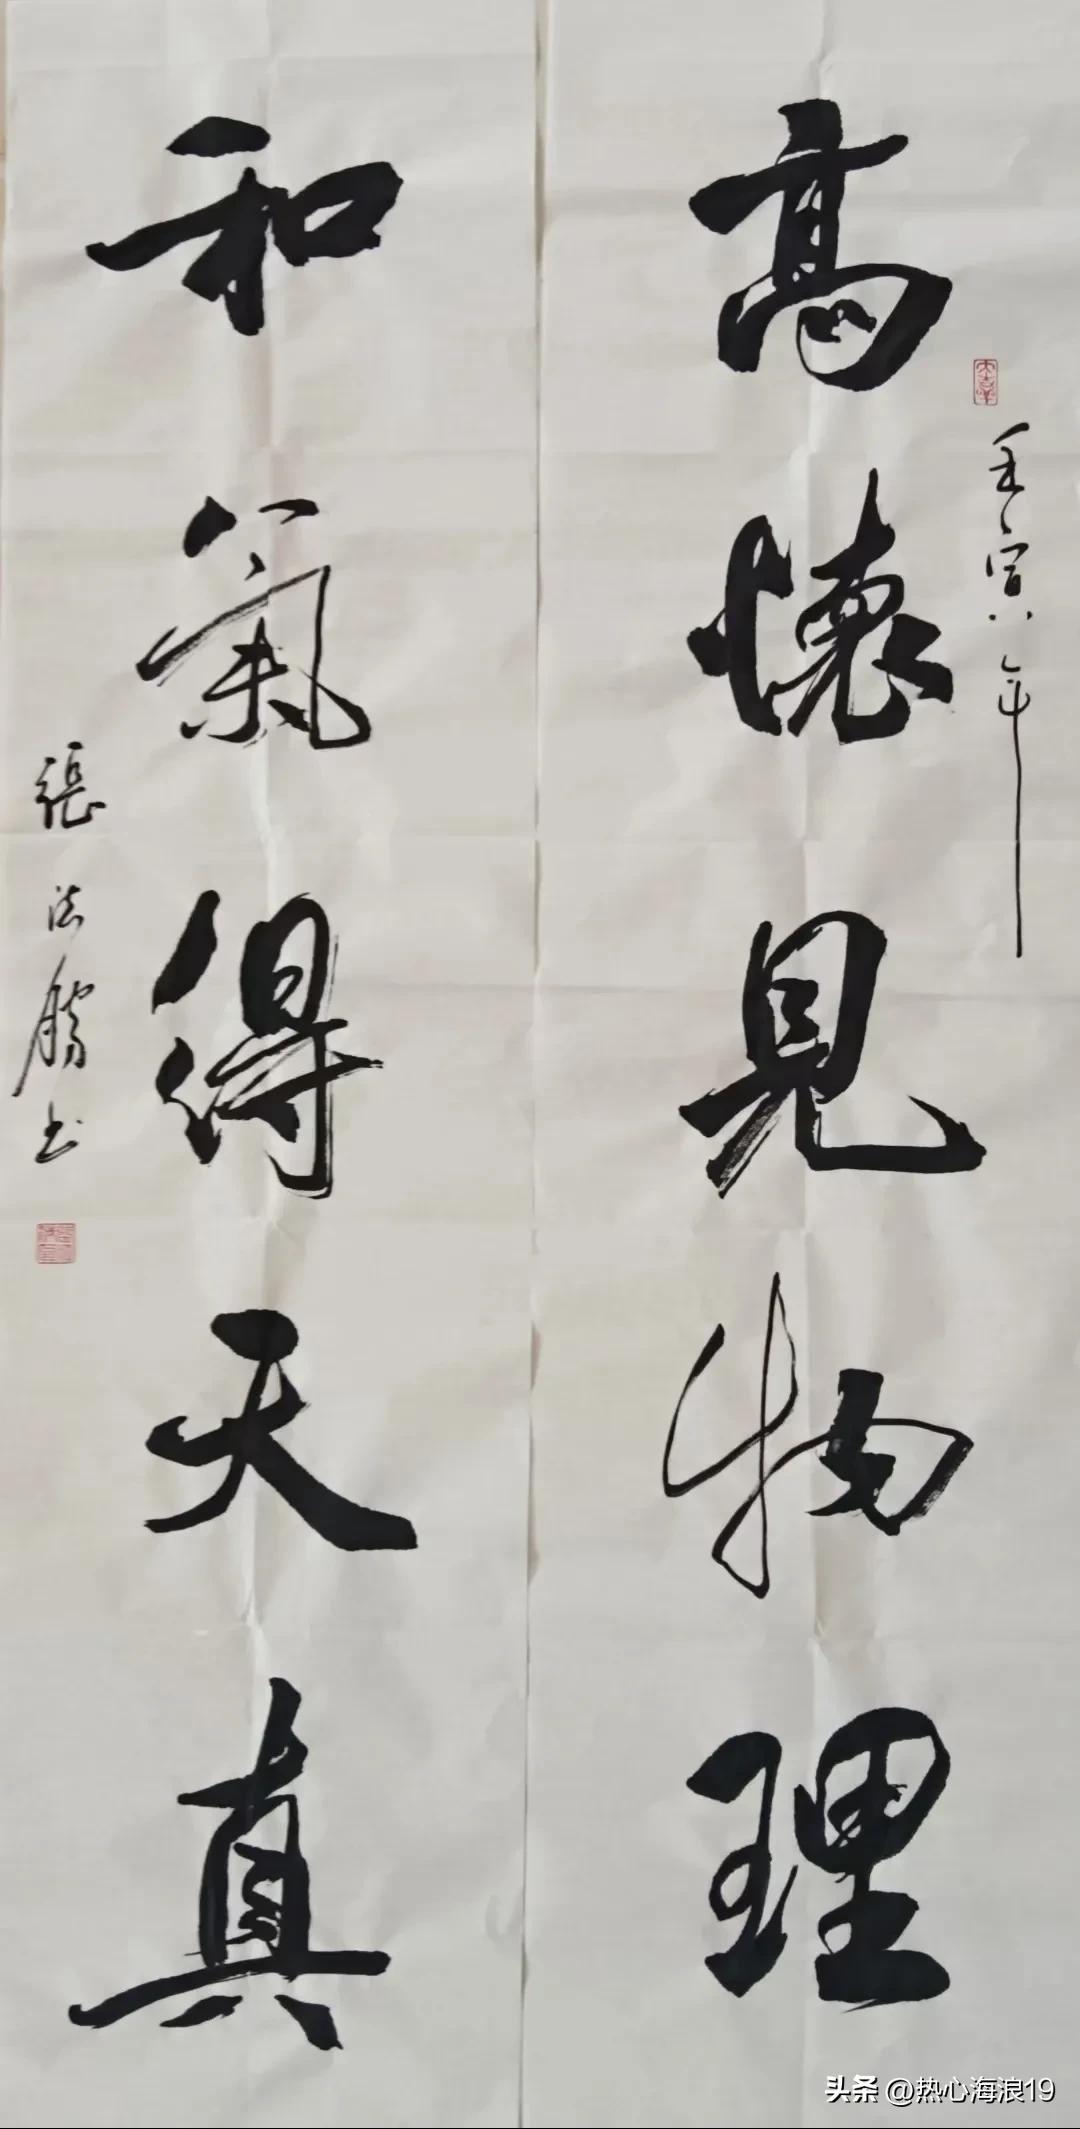 高懷見物理
壬寅年
和氣得天真
張法勝书
头条 @热心海浪19